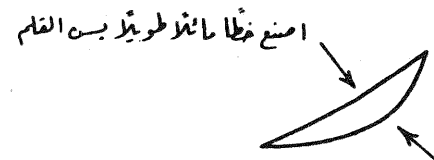 اصنع خطًا مائلًا طويلًا بسن القلم